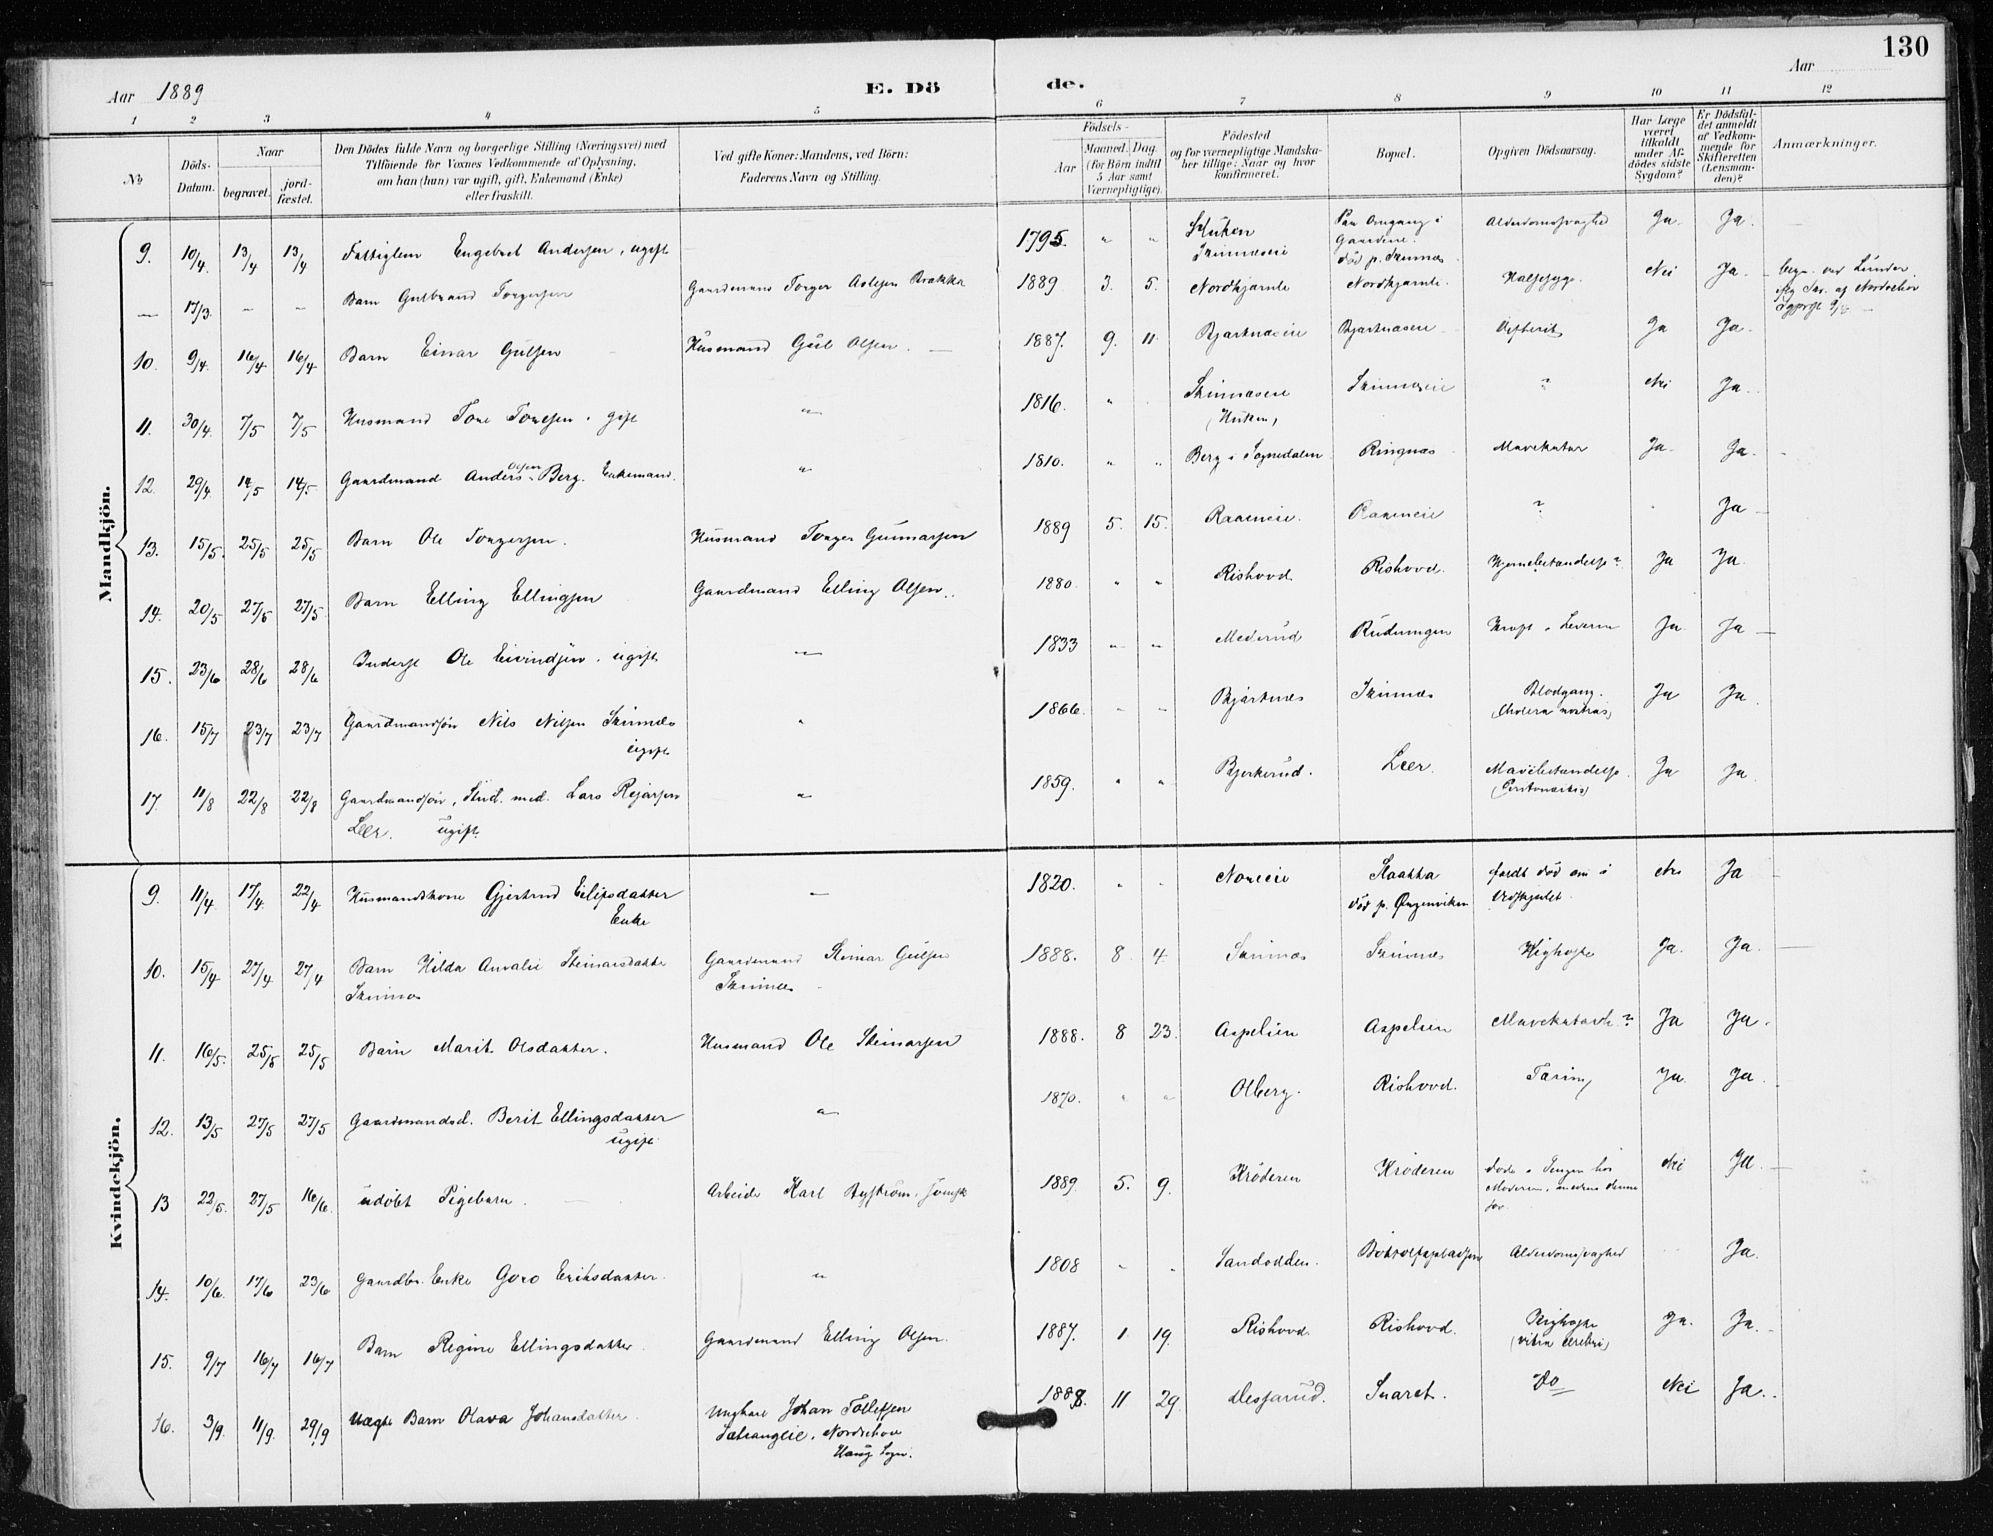 130
Aar 1889 E. Dö de. Aar
1 2 3 4 5 6 7 8 9 10 11 12
№
Döds-Datum.
Naar
begravet.
jord-fæstet.
Den Dödes fulde Navn og borgerlige Stilling (Næringsvei) med
Tilföiende for Voxnes Vedkommende af Oplysning,
om han (hun) var ugift, gift, Enkemand (Enke)
eller fraskilt.
Ved gifte Koner: Mandens, ved Börn:
Faderens Navn og Stilling.
Födsels-
Aar
Maaned. Dag.
(for Börn indtil
5 Aar samt
Værnepligtige).
Födested
og for værnepligtige Mandska-
ber tillige: Naar og hvor
konfirmeret.
Bopæl.
Opgiven Dödsaarsag.
Har Læge
været
tilkaldt
under Af-
dödes sidste
Sygdom?
Er Dödsfal-
det anmeldt
af Vedkom-
mende for
Skifteretten
(Lensman-
den)?
Anmærkninger.
Mandkjön.
9. 10/4. 13/4 13/4 Fattiglem Engebret Andersen, ugift 1795. " " Skinnæseie død p. Skinnæs Alderdomssvaghed Ja. Ja.
— 17/3. — — Barn Gulbrand Torgersen Gaardmand Torger Aslesen 1889 3. 5. Nordkjørnli Nordkjørnli. Halssyge. Nei Ja.
10. 9/4. 16/4 16/4 Barn Einar Gulsen Husmand Gul Olsen. 1887. 9. 11. Bjertnæseie Bjertnæseie Ja Ja.
11. 30/4. 7/5 7/5 Husmand Tore Toresen. gift " 1816. " Skinnæseie Skinnæseie ? Nei Ja.
12. 29/4. 14/5 14/5 Gaardmand Anders Olsen Berg. Enkemand. " 1810. " " Berg i Sognedalen Ringnæs Mavekatar Ja. Ja.
13. 15/5. 25/5 25/5 Barn Ole Torgersen. Husmand Torger Gunnarsen 1889 5. 15. Raaeneie. Raaeneie ? Ja
14. 20/5 27/5 27/5 Barn Elling Ellingsen Gaardmand Elling Olsen. 1880. " " Rishovd Rishovd. Hjernebetændelse? Ja Ja.
15. 23/6 28/6 28/6 Inderst Ole Eivindsen. ugift " 1833 " " Mederud Ruderengen Kræft i Leveren Ja Ja
16. 15/7 23/7 23/7 Gaardmandssøn Nils Nilsen Skinnæs ugift " 1866. " " Bjertnæs Skinnæs Blodgang. (Cholera nostras) Ja Ja.
17. 11/8 22/8 22/8 Gaardmandssøn, Stud. med. Lars Reiarsen Leer. ugift. " 1859. " " Bjerkerud. Leer. Mavebetændelse. Ja Ja.
Kvindekjön.
9. 11/4. 17/4. 22/4 Husmandskone Gjertrud Eilifsdatter Enke " 1820. " " Noreeie Staakka død p. Ørgenviken fandt død om i Vedskjulet. Nei Ja
10. 15/4 27/4 27/4 Barn Hilda Amalie Steinarsdatter Skinnes Gaardmand Steinar Gulsen Skinnes 1888. 8. 4. Skinnæs Skinnæs Kighoste Ja. Ja.
11. 16/5. 25/5 25/5 Barn Marit Olsdatter. Husmand Ole Steinarsen 1888. 8 23. Aspelien Aspelien Mavekatarrh? Ja Ja.
12. 13/5 27/5 27/5 Gaardmandsd. Berit Ellingsdatter ugift. " 1870. " " Olberg. Rishovd. Tæring Ja Ja.
13 22/5. 27/5 16/6. udøbt Pigebarn. Arbeider Karl Bystrøm, svensk 1889. 5. 9. Krøderen Krøderen døde i Sengen hos Moderen, medens denne sov. Nei Ja.
14. 10/6. 17/6 23/6 Gaardbr. Enke Goro Eriksdatter. " 1808 " " Sandodden. Botolfspladsen Alderdomssvaghed Ja.
15. 9/7 16/7 16/7 Barn Regine Ellingsdatter. Gaardmand Elling Olsen. 1887. 1. 19. Rishovd. Rishovd. Kighoste Ja. Ja.
16. 3/9. 11/9. 29/9 Uægte Barn Olava Johansdatter. Ungkarl Johan Tollefsen Nordrehov Haug Sogn. 1888. 11 29 Snaret. Do Nei Ja.